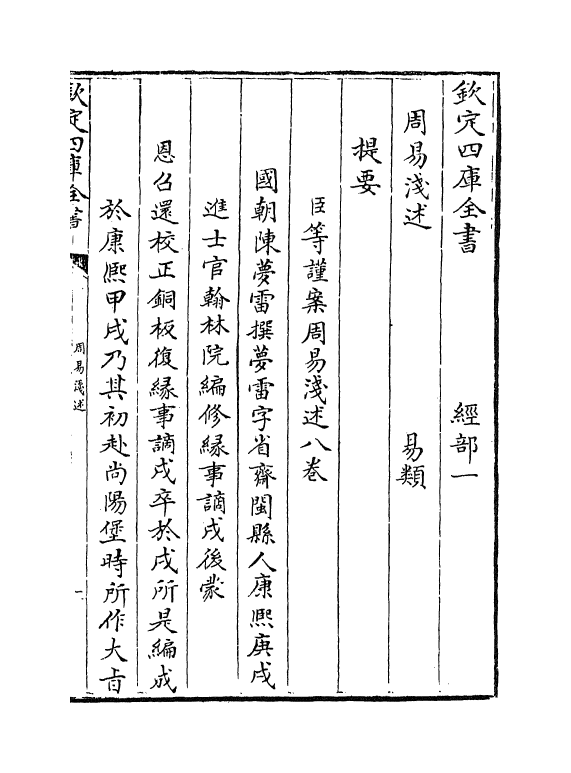 欽定四庫全書 經部一
周易淺述 易類
提要
臣等謹案周易淺述八巻
國朝陳夢雷撰夢雷字省齋閩縣人康熙庚戌
進士官翰林院編修緣事謫戍後蒙
恩召還校正銅板復緣事謫戍卒於戍所是編成
於康熈甲戌乃其初赴尚陽堡時所作大㫖
欽定四庫全書
周易淺述
一